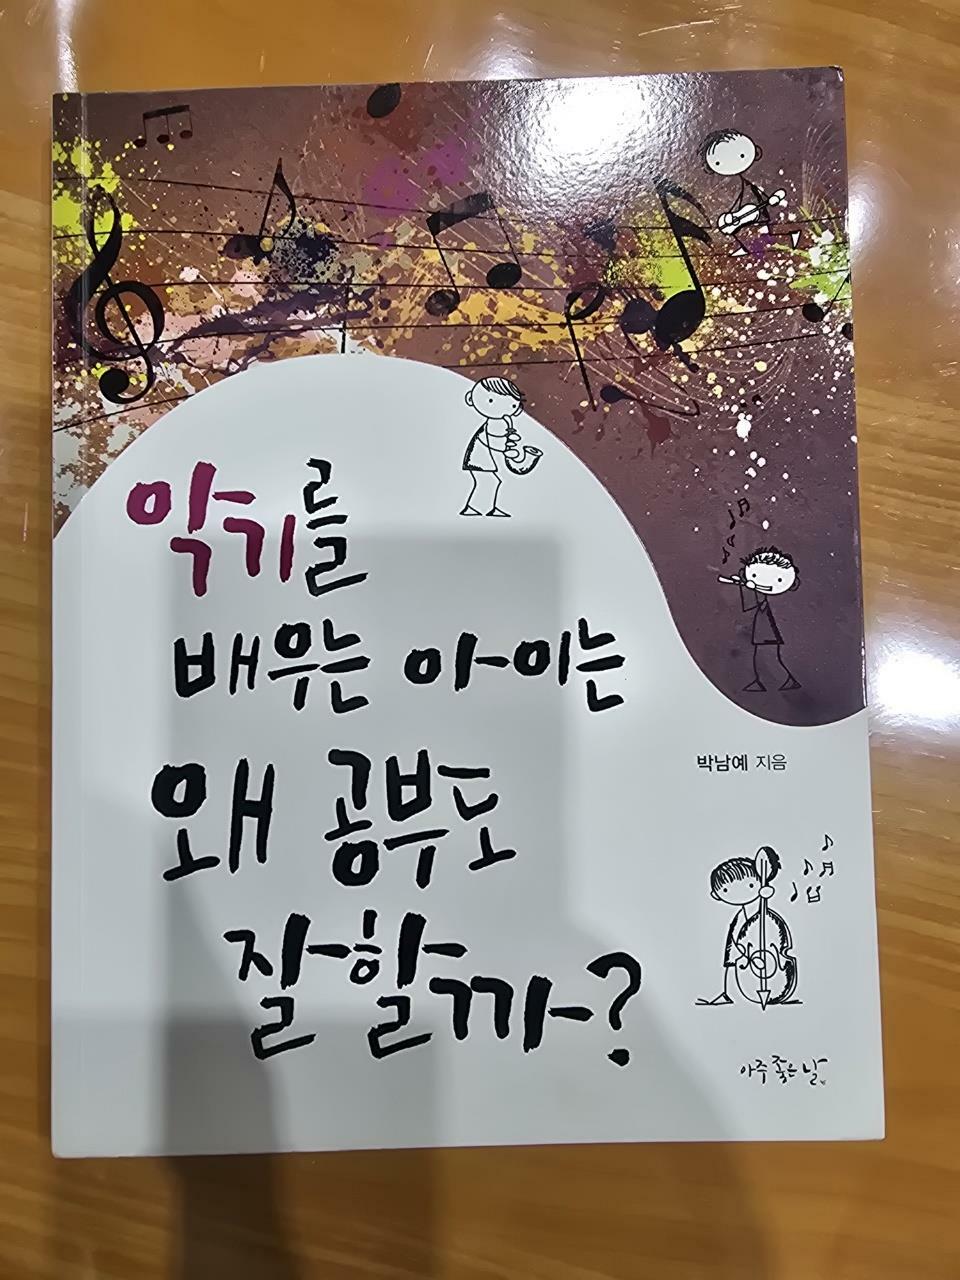 악기를
배우는 아이는
왜 공부도
잘할까?
박남예 지음
아주 좋은 날